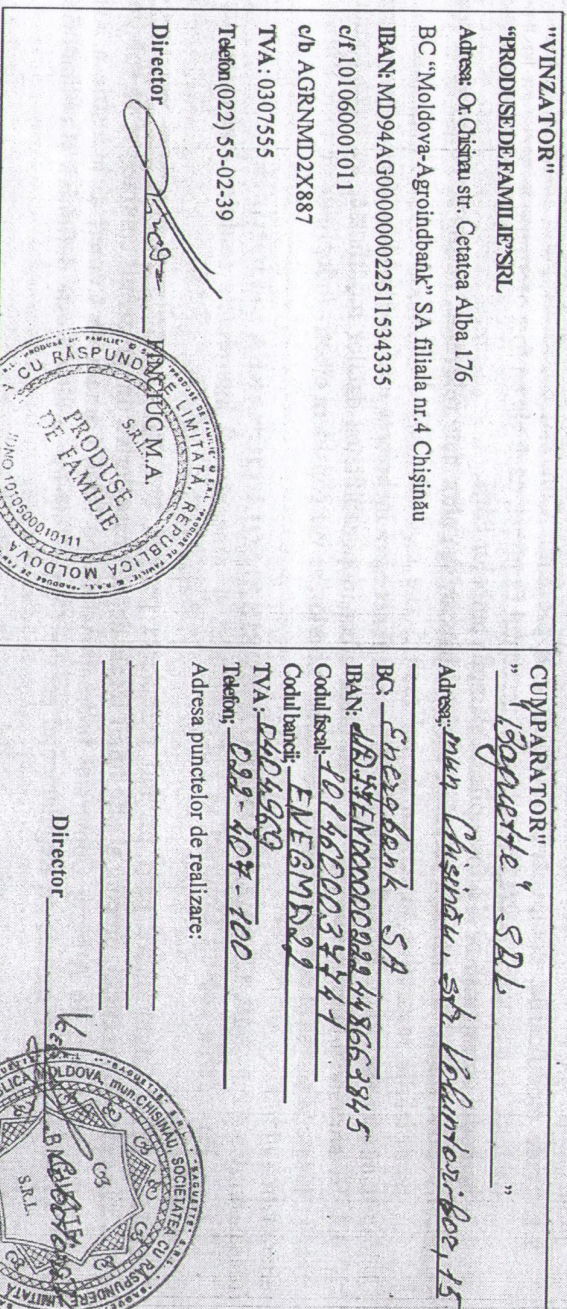 "VINZATOR"
"PRODUSE DE FAMILIE" SRL
Adresa: Or. Chisinau str. Cetatea Alba 176
BC "Moldova-Agroindbank" SA filiala nr.4 Chişinău
IBAN: MD94AG000000022511534335
c/f 101060001011
c/b AGRNMD2X887
TVA: 0307555
Telefon (022) 55-02-39
Director PINCIUC M.A.
CU RĂSPUNDERE LIMITATĂ, REPUBLICA MOLDOVA
S.R.L.
PRODUSE
DE FAMILIE
IDNO 1010600010111
CUMPARATOR"
" "Baguette" SRL "
Adresa: mun Chişinău, str. Voluntarilor, 15
BC: Energbank SA
IBAN:
Codul fiscal: 1014600037741
Codul bancii: ENEGMD22
TVA: 0404969
Telefon: 022-407-100
Adresa punctelor de realizare:
Director
MOLDOVA, mun. CHIŞINĂU, SOCIETATEA CU RĂSPUNDERE LIMITATĂ
BAGUETTE
S.R.L.